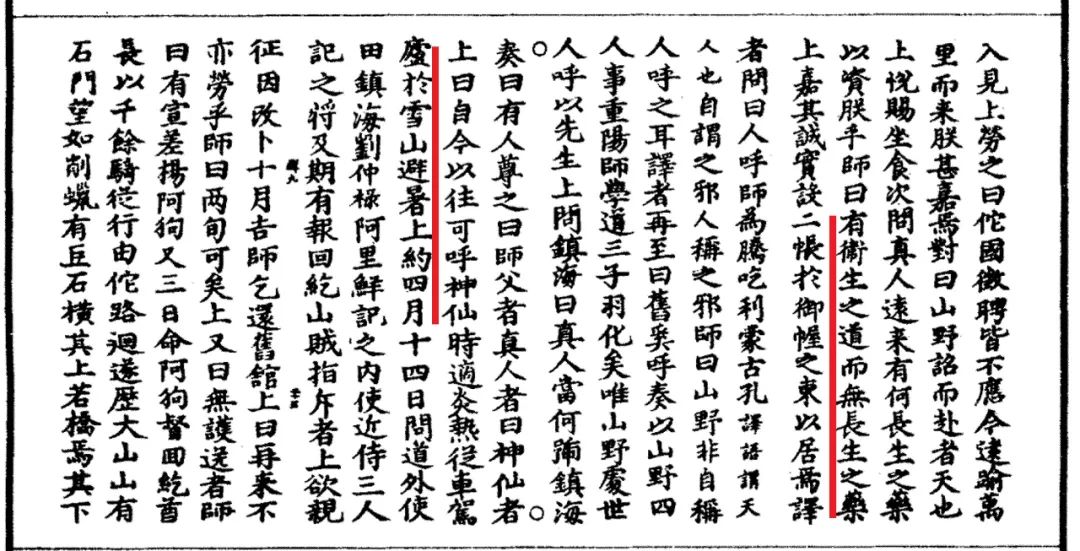 入見上勞之曰佗國徵聘皆不應今遠踰萬
里而来朕甚嘉焉對曰山野詔而赴者天也
上悅賜坐食次問真人遠来有何長生之藥
以資朕乎師曰有衞生之道而無長生之藥
上嘉其誠實設二帳於御幄之東以居焉譯
者問曰人呼師為騰吃利蒙古孔譯語謂天
人也自謂之邪人稱之邪師曰山野非自稱
人呼之耳譯者再至曰舊奚呼奏以山野四
人事重陽師學道三子羽化矣唯山野處世
人呼以先生上問鎮海曰真人當何號鎮海
奏曰有人尊之曰師父者真人者曰神仙者
上曰自今以往可呼神仙時適炎熱從車駕
廬於雪山避暑上約四月十四日問道外使
田鎮海劉仲祿阿里鮮記之内使近侍三人
記之將及期有報回紇山賊指斥者上欲親
征因改卜十月吉師乞還舊舘上曰再来不
亦勞乎師曰两旬可矣上又曰無護送者師
曰有宣差楊阿狗又三日命阿狗督回紇酋
長以千餘騎從行由佗路廻遂歷大山山有
石門望如削蠟有巨石橫其上若橋焉其下